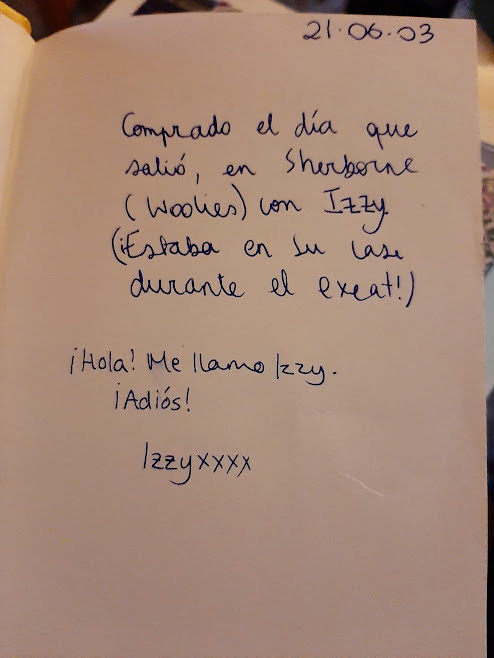 21.06.03
Comprado el día que
salió, en Sherborne
(Woolies) con Izzy
(¡Estaba en su casa
durante el exeat!)
¡Hola! Me llamo Izzy.
¡Adiós!
Izzyxxxx